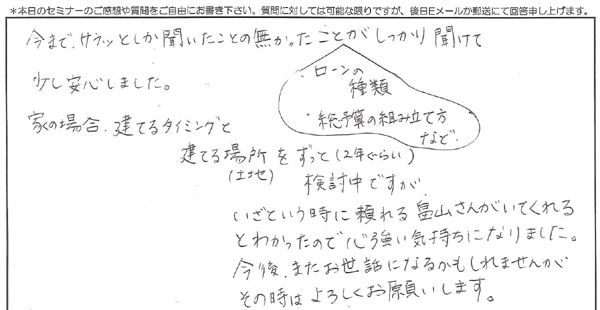 *本日のセミナーのご感想や質問をご自由にお書き下さい。質問に対しては可能な限りですが、後日Eメールか郵送にて回答申し上げます。
今まで、サラッとしか聞いたことの無かったことがしっかり聞けて
少し安心しました。
・ローンの種類
・総予算の組み立て方
など。
家の場合、建てるタイミングと
建てる場所をずっと(2年ぐらい)
(土地)
検討中ですが、
いざという時に頼れる畠山さんがいてくれる
とわかったので心強い気持ちになりました。
今後、またお世話になるかもしれませんが
その時はよろしくお願いします。